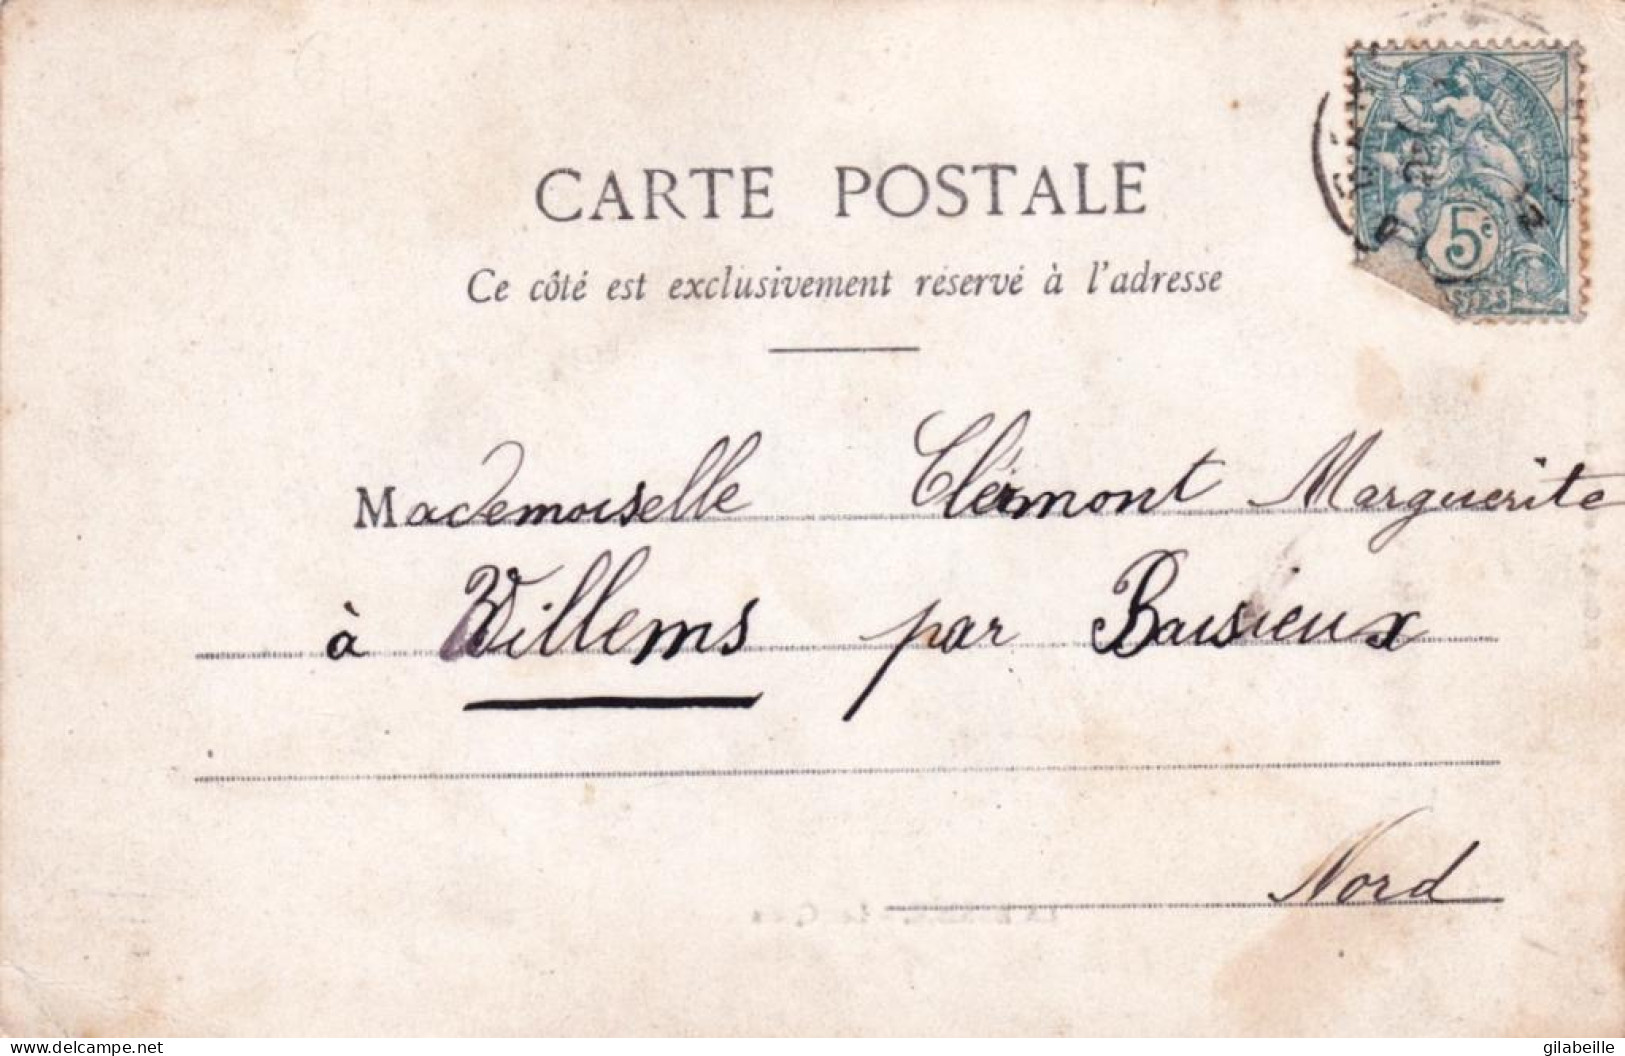 CARTE POSTALE
Ce côté est exclusivement réservé à l'adresse
5c
Mademoiselle Clérmont Marguerite
à Willems par Baisieux
Nord
delcampe.net
gilabeille